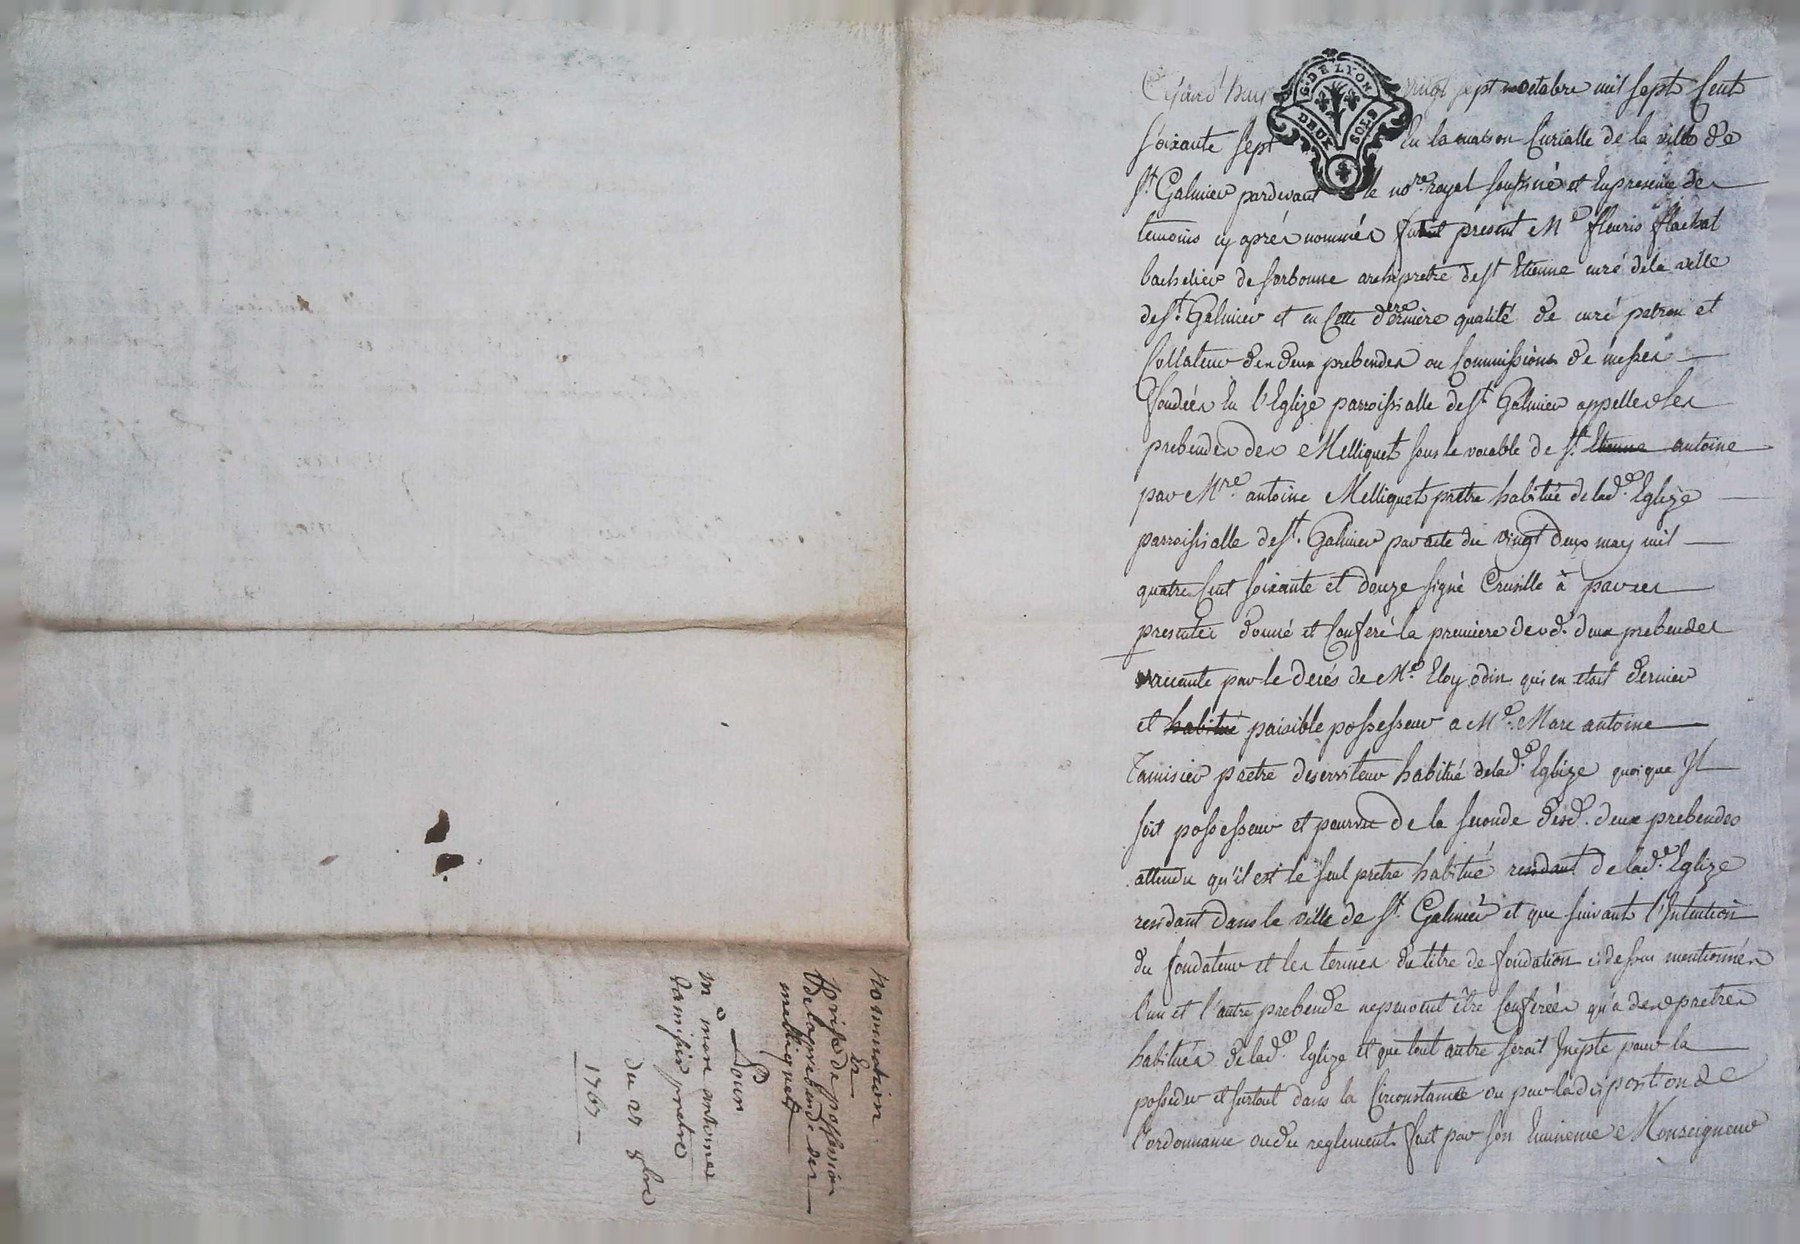 nomination
Et
prise de possession
de la prebande des
melliquet
Pour
Me marc antoine
Tamisier pretre
du 27 8bre
1767
G. DE LYON
DEUX SOLS
Cejourd'huy vingt sept octobre mil sept Cent
soixante sept En la maison Curialle de la ville de
St Galmier pardevant le nore royal soussiné et En presence des
temoins cy aprés nommés fut present Me fleuris flachat
bachelier de sorbonne archipretre de st Etienne curé de la ville
de st. Galmier et en Cette derniere qualité de curé patron et
Collateur des deux prebendes ou Commissions de messes
fondées En l'Eglize parroissialle de st Galmier appellées les
prebendes des Melliquet sous le vocable de st. Etienne antoine
par Mre. antoine Melliquet pretre habitué de lade. Eglize
parroissialle de st. Galmier par acte du vingt deux may mil
quatre Cent soixante et douze signé Cruville à par ces
presentes donné et Conferé la premiere desd. deux prebendes
vaccante par le decés de Me. Eloy odin qui en etoit dernier
et habitué paisible possesseur a Me. Marc antoine
Tamisier pretre desserviteur habitué de lade. Eglize quoique Il
soit possesseur et pourvu de la seconde desd. deux prebendes
attendu qu'il est le seul pretre habitué rendant de lade. Eglize
residant dans la ville de st. Galmier et que suivant l'Intention
du fondateur et les termes du titre de fondation ci dessus mentionnés
l'un et l'autre prebende ne peuvent être Conferées qu'a des pretres
habitués de lade. Eglize et que tout autre seroit Inepte pour la
posseder et surtout dans la Circonstance ou par la disposition de
l'ordonnance ou du reglement fait par son Eminence Monseigneur